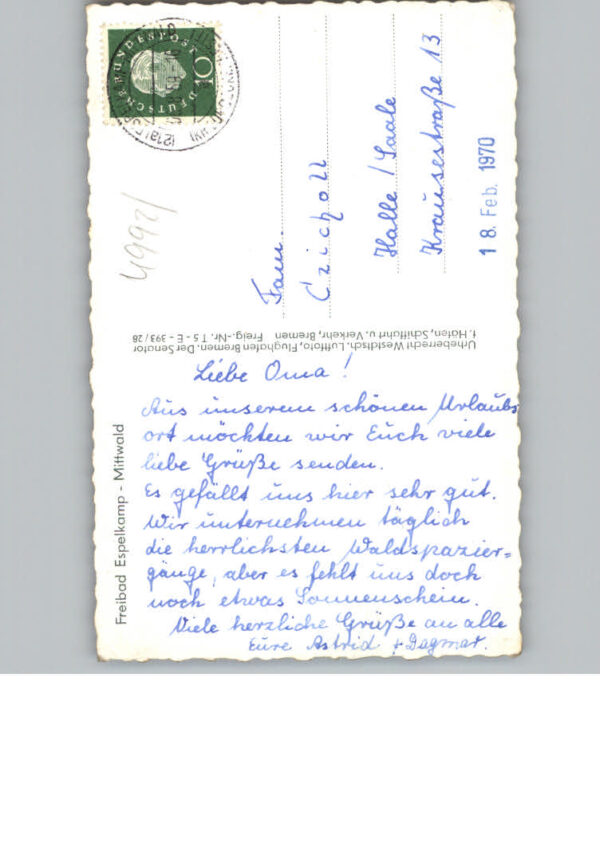 Liebe Oma!
Aus unserem schönen Urlaubs
ort möchten wir Euch viele
liebe Grüße senden.
Es gefällt uns hier sehr gut.
Wir unternehmen täglich
die herrlichsten Waldspazier=
gänge, aber es fehlt uns doch
noch etwas Sonnenschein.
Viele herzliche Grüße an alle
Eure Astrid + Dagmar.
Fam.
Czichott
Halle / Saale
Krausestraße 13
18. Feb. 1970
Freibad Espelkamp - Mittwald
Urheberrecht Westdtsch. Luftfoto, Flughafen Bremen. Der Senator
f. Häfen, Schiffahrt u. Verkehr, Bremen Freig.-Nr. T 5 - E - 393 / 28
DEUTSCHE BUNDESPOST
10